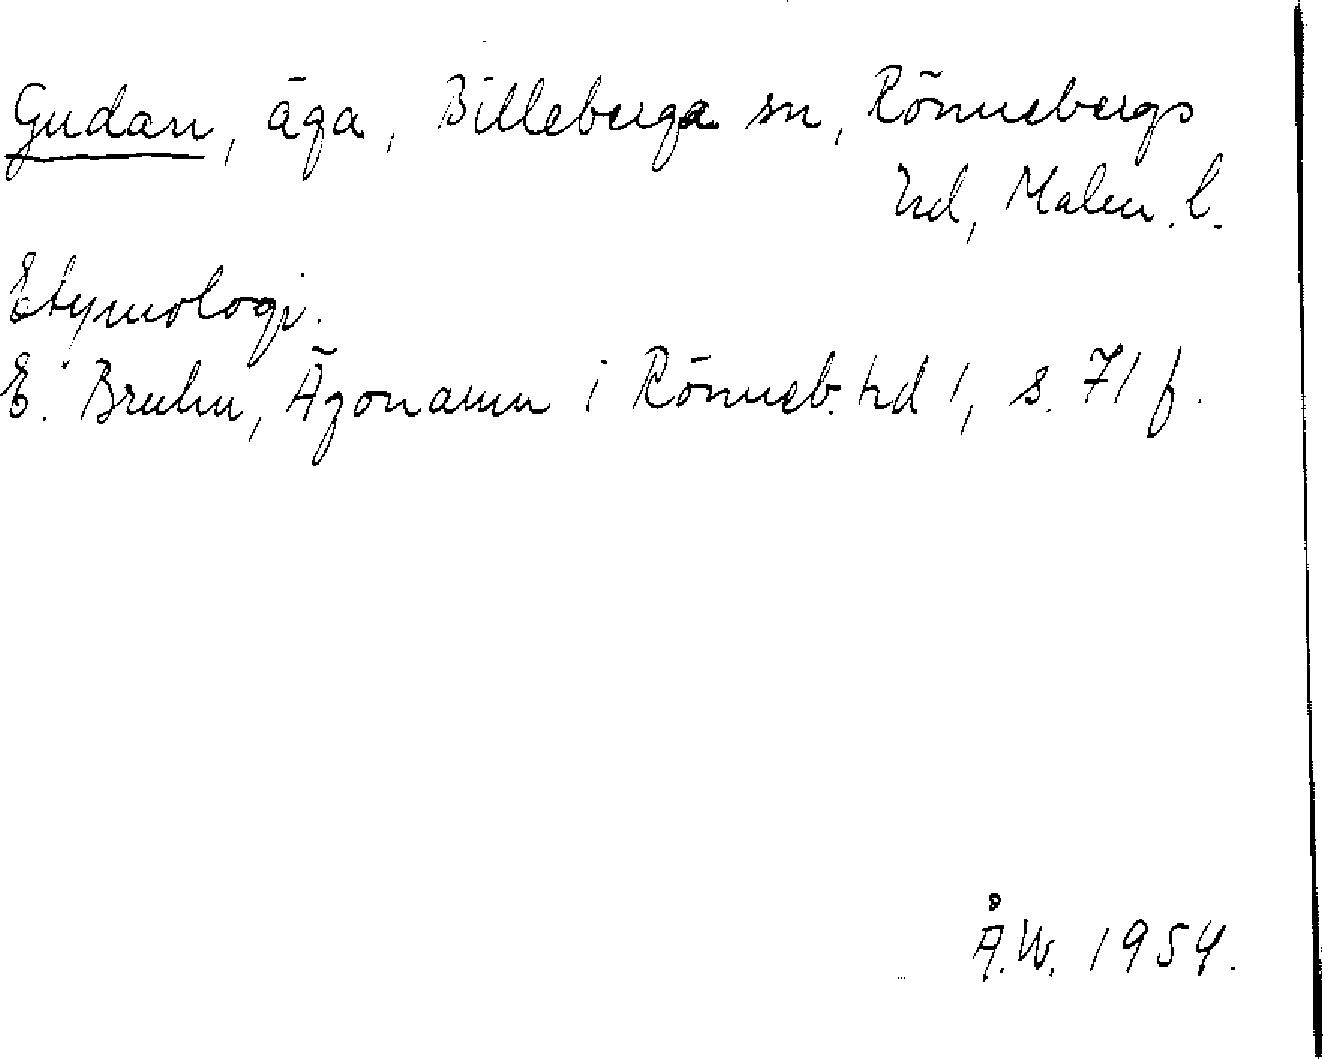 Gudan, äga, Billeberga sn, Rönnebergs
hd, Malm. l.
Etymologi.
E. Bruhn, Ägonamn i Rönneb. hd 1, s. 71 f.
Å.W. 1954.